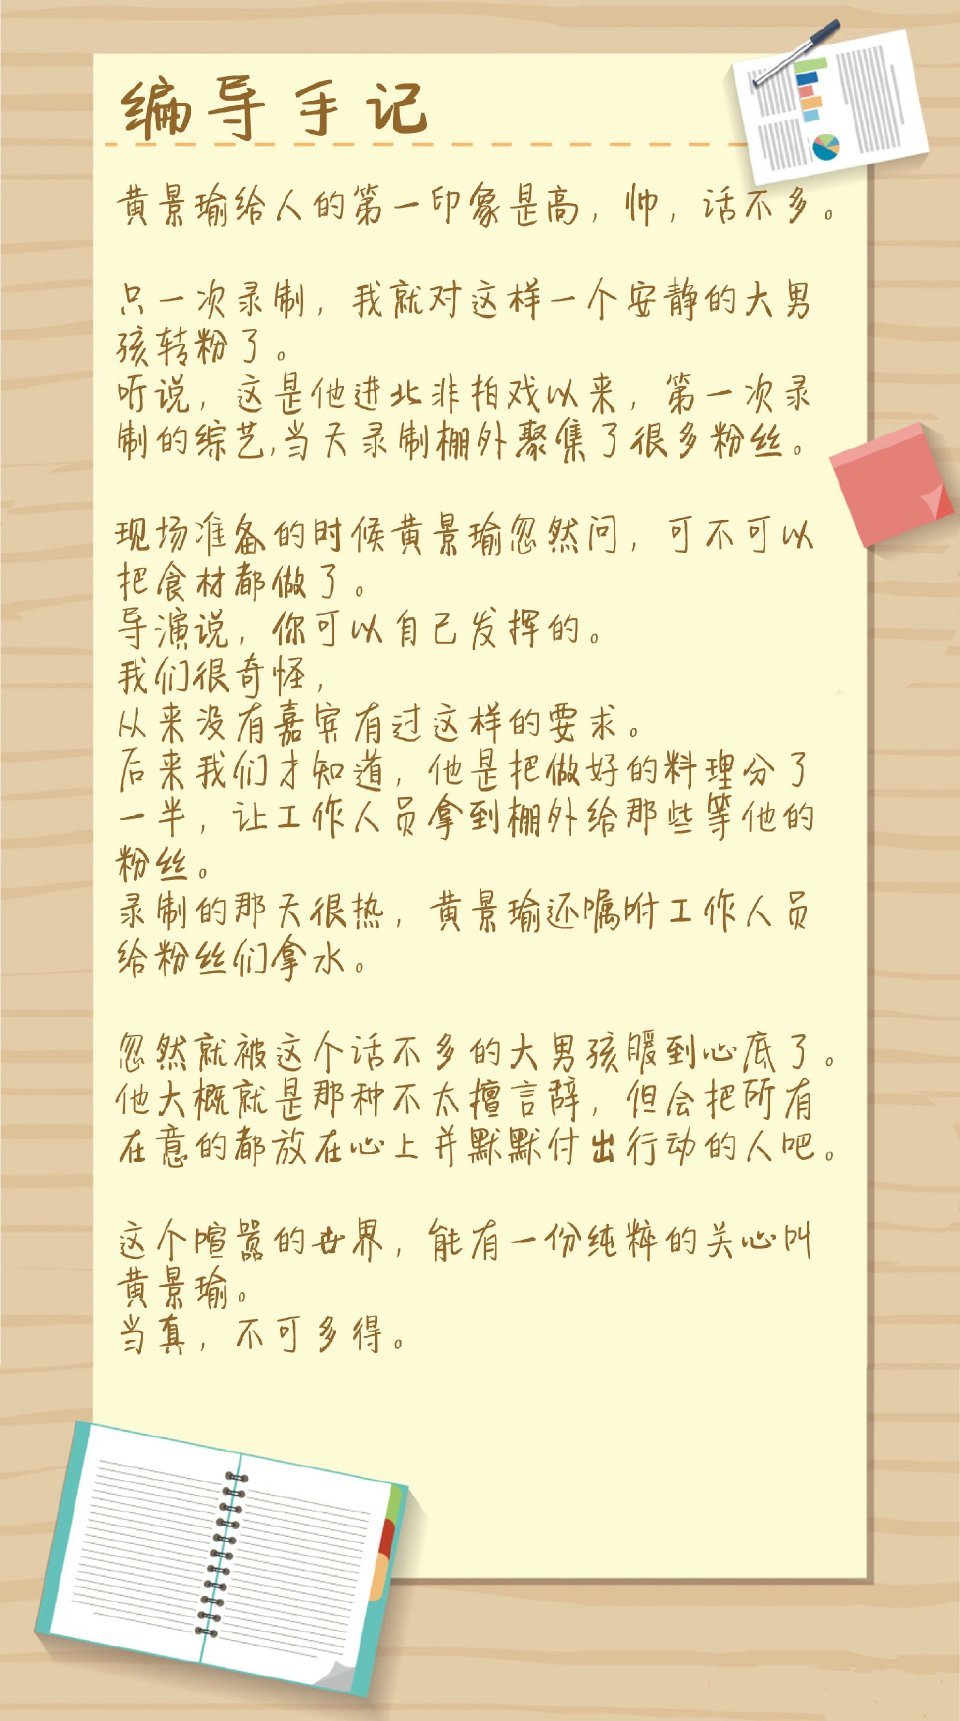 编导手记
黄景瑜给人的第一印象是高，帅，话不多。
只一次录制，我就对这样一个安静的大男
孩转粉了。
听说，这是他进北非拍戏以来，第一次录
制的综艺,当天录制棚外聚集了很多粉丝。
现场准备的时候黄景瑜忽然问，可不可以
把食材都做了。
导演说，你可以自己发挥的。
我们很奇怪，
从来没有嘉宾有过这样的要求。
后来我们才知道，他是把做好的料理分了
一半，让工作人员拿到棚外给那些等他的
粉丝。
录制的那天很热，黄景瑜还嘱咐工作人员
给粉丝们拿水。
忽然就被这个话不多的大男孩暖到心底了。
他大概就是那种不太擅言辞，但会把所有
在意的都放在心上并默默付出行动的人吧。
这个喧嚣的世界，能有一份纯粹的关心叫
黄景瑜。
当真，不可多得。